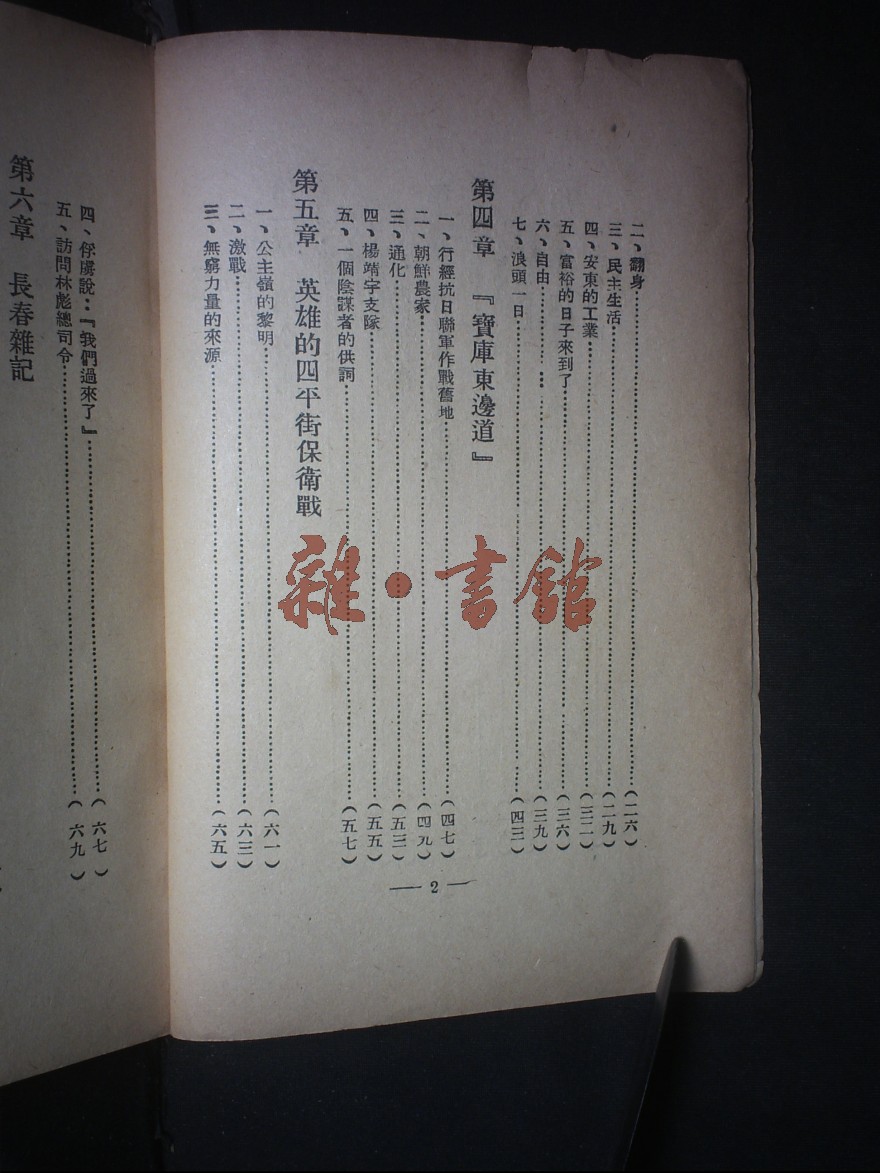 二、翻身……(二六)
三、民主生活……(二九)
四、安東的工業……(三二)
五、富裕的日子來到了……(三六)
六、自由……(三九)
七、浪頭一日……(四三)
第四章 『寶庫東邊道』
一、行經抗日聯軍作戰舊地……(四七)
二、朝鮮農家……(四九)
三、通化……(五三)
四、楊靖宇支隊……(五五)
五、一個陰謀者的供詞……(五七)
第五章 英雄的四平街保衛戰
一、公主嶺的黎明……(六一)
二、激戰……(六三)
三、無窮力量的來源……(六五)
— 2 —
四、俘虜說：『我們過來了』……(六七)
五、訪問林彪總司令……(六九)
第六章 長春雜記
雜·書館